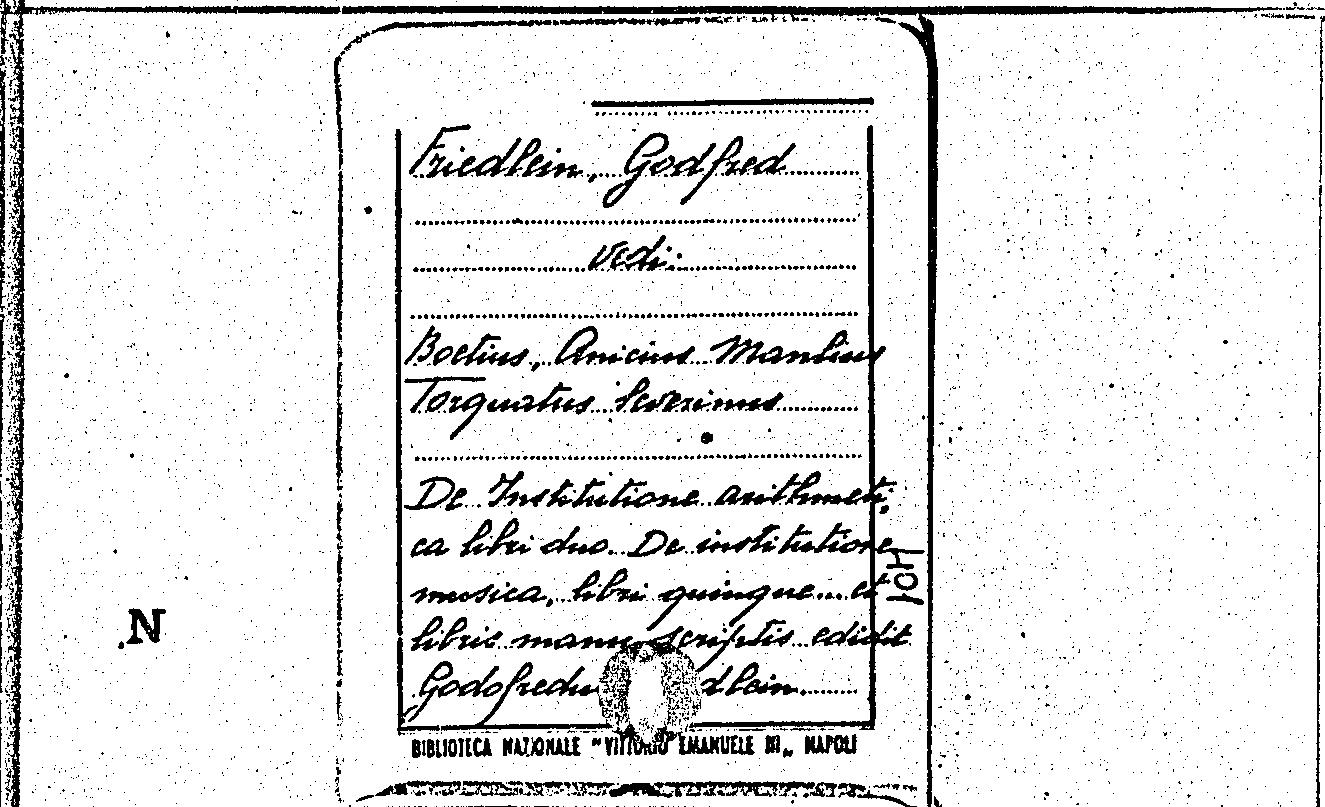 Friedlein, Godfred
vedi:
Boetius, Anicius Manlius
Torquatus Severinus
De Institutione arithmeti-
ca libri duo. De institutione
musica, libri quinque... et
libris manu scriptis edidit
Godofredu dlein.
BIBLIOTECA NAZIONALE "VITTORIO EMANUELE III„ NAPOLI
N